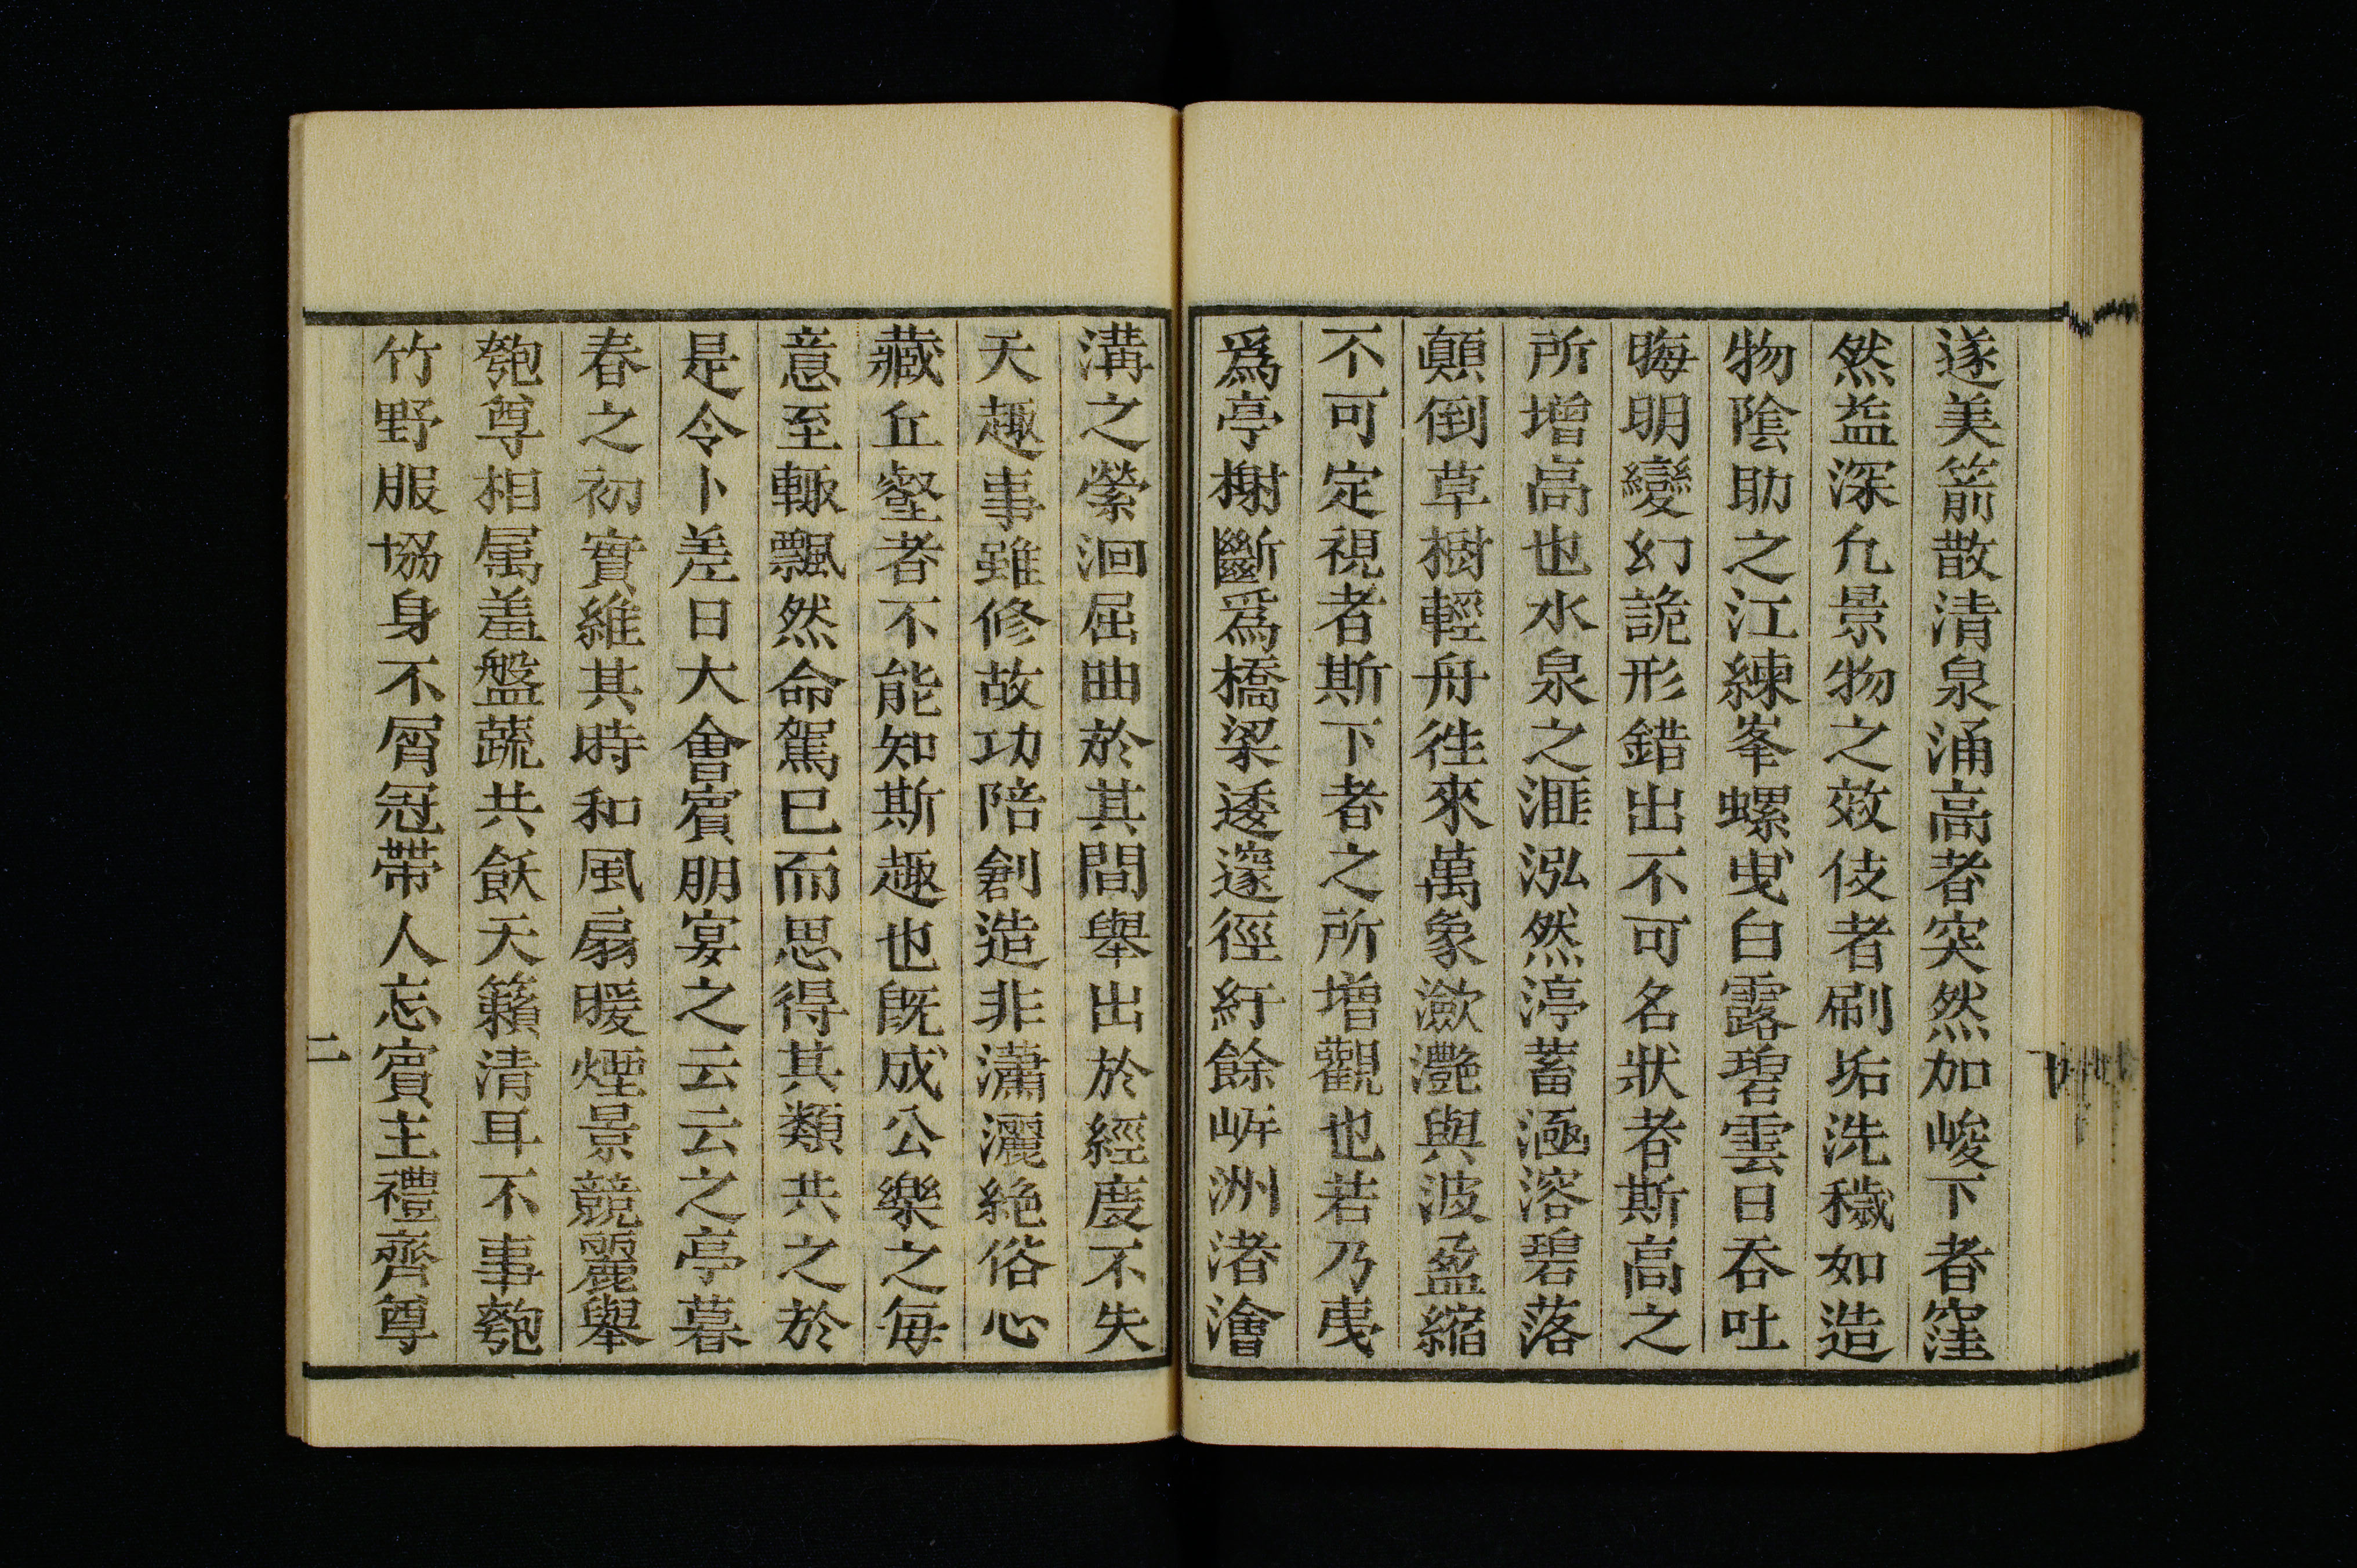 遂美箭散清泉涌高者突然加峻下者窪
然益深凢景物之效伎者刷垢洗穢如造
物陰助之江練峯螺曳白露碧雲日吞吐
晦明變幻詭形錯出不可名狀者斯高之
所增高也水泉之滙泓然渟蓄涵溶碧落
顛倒草樹輕舟徃來萬象瀲灔與波盈縮
不可定視者斯下者之所增觀也若乃曳
爲亭榭斷爲橋梁逶邃徑紆餘㟁洲渚澮
溝之縈洄屈曲於其間舉出於經度不失
天趣事雖修故功陪創造非瀟灑絶俗心
藏丘壑者不能知斯趣也旣成公樂之每
意至輙飄然命駕已而思得其類共之於
是令卜差日大會賓朋宴之云云之亭暮
春之初實維其時和風扇暖煙景競麗舉
匏尊相属羞盤蔬共飫天籟清耳不事匏
竹野服協身不屑冠帶人忘賓主禮齊尊
二